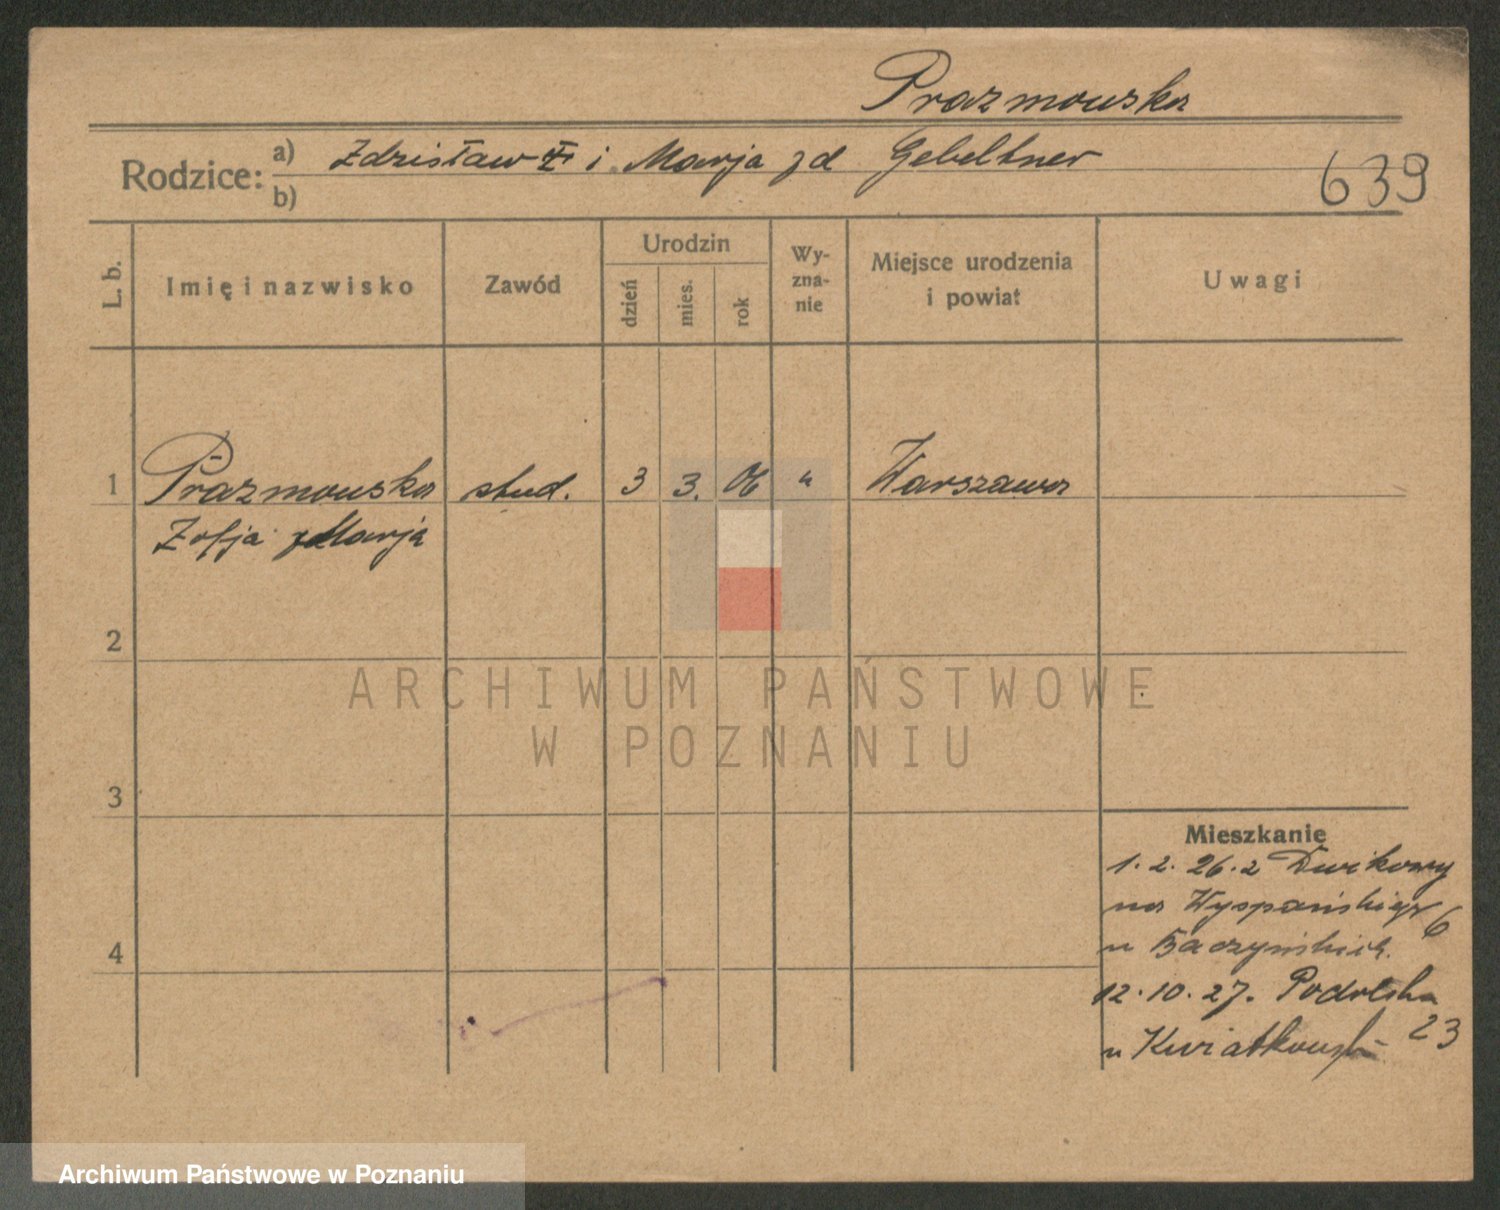 Prazmowska
Rodzice: a) Zdzisław i Marja zd Gebethner
b)
639
L. b.
Imię i nazwisko
Zawód
Urodzin
dzień
mies.
rok
Wy-
zna-
nie
Miejsce urodzenia
i powiat
Uwagi
1 Prazmowska stud. 3 3. 06 " Warszawa
Zofja Marja
2
ARCHIWUM PAŃSTWOWE
W POZNANIU
3
Mieszkanie
1. 2. 26. z
na Wyspańskiego 6
u Baczyńskich.
4
12. 10. 27. Podolska
23
u
Archiwum Państwowe w Poznaniu